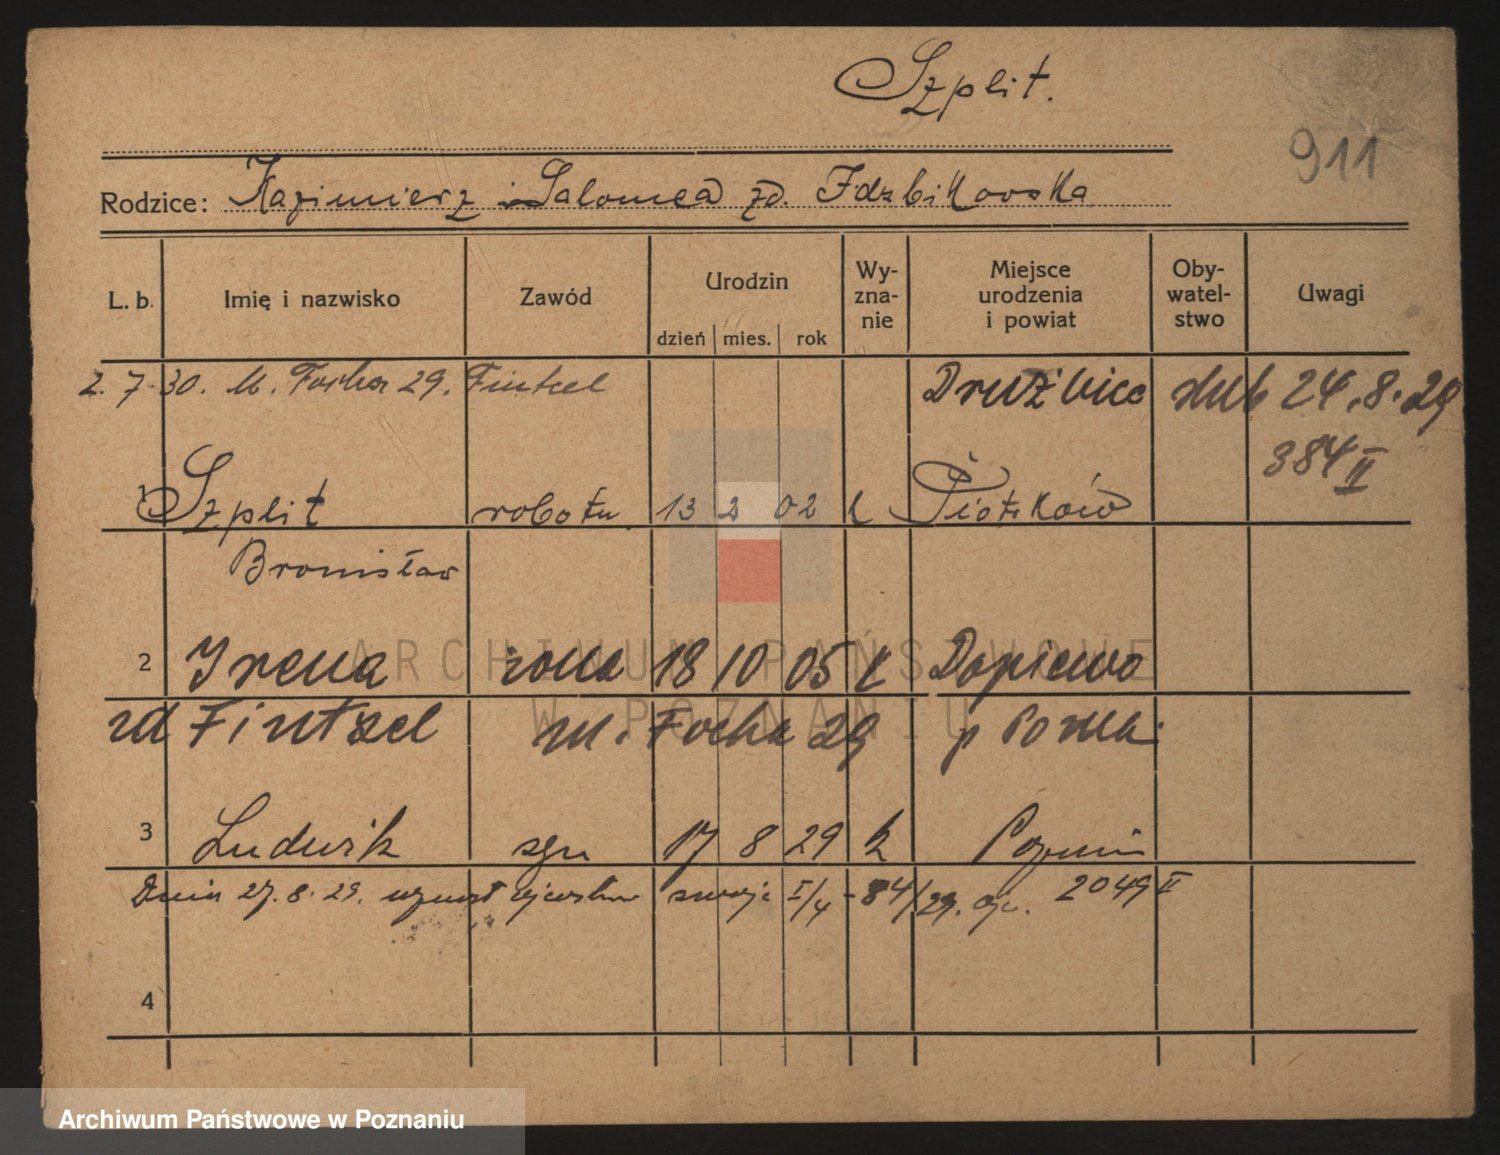 Szplit.
911
Rodzice: Kazimierz i Salomea zd. Idzbikowska
L. b. Imię i nazwisko Zawód Urodzin dzień mies. rok Wy-zna-nie Miejsce urodzenia i powiat Oby-watel-stwo Uwagi
2. 7. 30. M. Focha 29. Fintzel Drużbice ślub 24.8.29
384 II
1 Szplit robotn. 13 2 02 k Piotrków
Bronisław
2 Irena żona 18 10 05 k Dopiewo
zd Fintzel M. Focha 29 p Pozna.
3 Ludwik syn 17 8 29 k Poznań
Dnia 27.8.29. uznał ojcostwo swoje I/4 - 84/29. 2049 II
4
ARCHIWUM PAŃSTWOWE
W POZNANIU
Archiwum Państwowe w Poznaniu